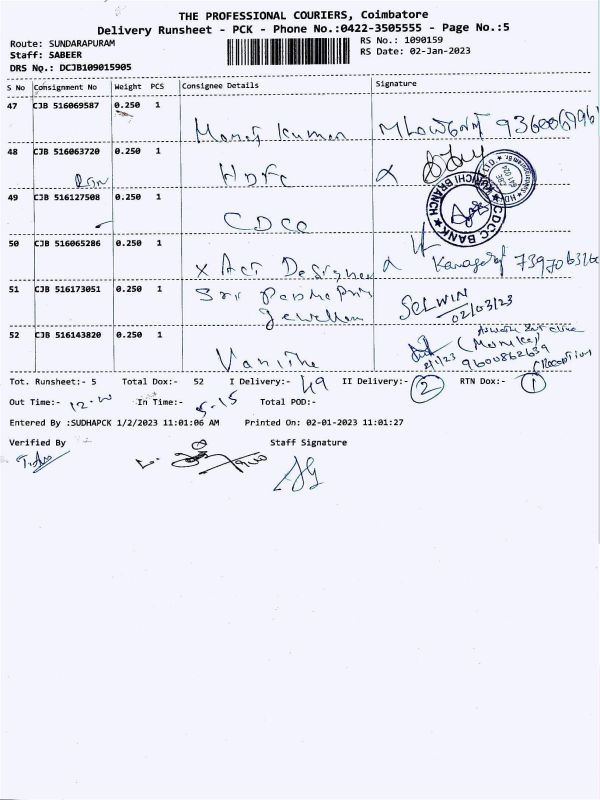 THE PROFESSIONAL COURIERS, Coimbatore
Delivery Runsheet - PCK - Phone No.:0422-3505555 - Page No.:5
Route: SUNDARAPURAM
RS No.: 1090159
Staff: SABEER
RS Date: 02-Jan-2023
DRS No.: DCJB109015905
S No Consignment No Weight PCS Consignee Details Signature
47 CJB 516069587 0.250 1
Kumar
48 CJB 516063720 0.250 1
HDFC
49 CJB 516127508 0.250 1
CDCC
CDCC BANK
KURICHI BRANCH
50 CJB 516065286 0.250 1
X Act Designer
51 CJB 516173051 0.250 1
Sri
SELWIN
02/03/23
52 CJB 516143820 0.250 1
9600862639
(Reception)
Tot. Runsheet:- 5 Total Dox:- 52 I Delivery:- 49 II Delivery:- 2 RTN Dox:- 1
Out Time:- In Time:- 5-15 Total POD:-
Entered By :SUDHAPCK 1/2/2023 11:01:06 AM Printed On: 02-01-2023 11:01:27
Verified By Staff Signature